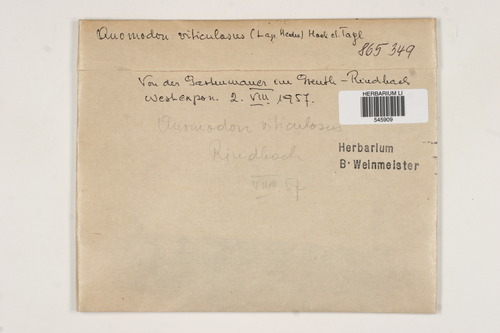 Anomodon viticulosus (Hedw) Hook et Tayl
865 349
Von der Gartenmauer im Greuth - Rindbach
Westexpon. 2. VIII 1957.
HERBARIUM LI
545909
Anomodon viticulosus
Rindbach
VIII 57
Herbarium
B. Weinmeister